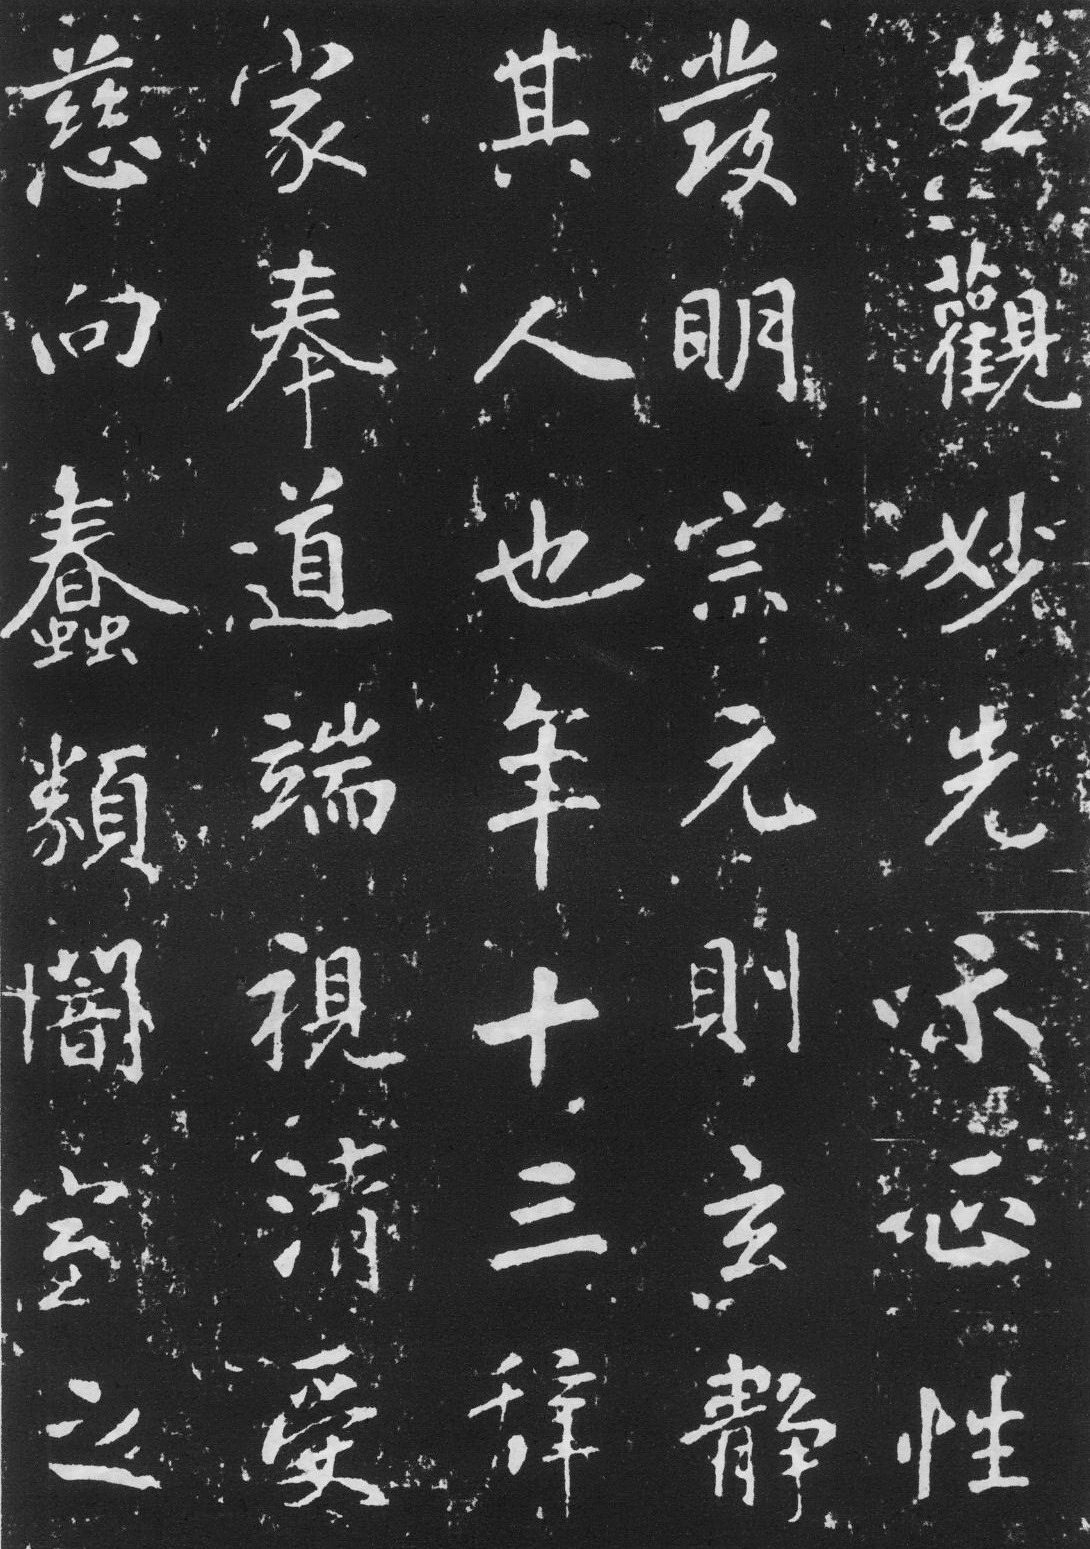 然觀妙先示正性
發明宗元則玄靜
其人也年十三辞
家奉道端視清受
慈向蠢類闇室之